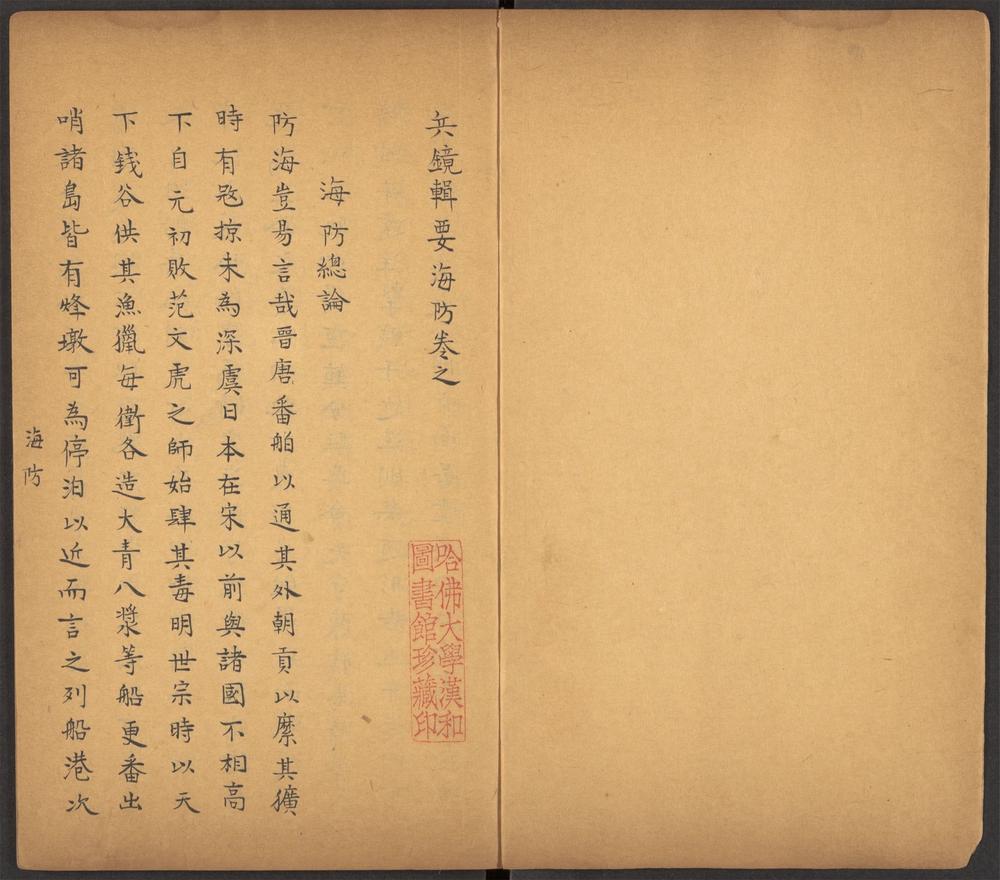 兵鏡輯要海防卷之
海防總論
防海豈易言哉晉唐番舶以通其外朝貢以縻其獷
時有寇掠未為深虞日本在宋以前與諸國不相高
下自元初敗范文虎之師始肆其毒明世宗時以天
下錢谷供其漁獵每衛各造大青八槳等船更番出
哨諸島皆有烽墩可為停泊以近而言之列船港次
海防
哈佛大學漢和
圖書館珍藏印